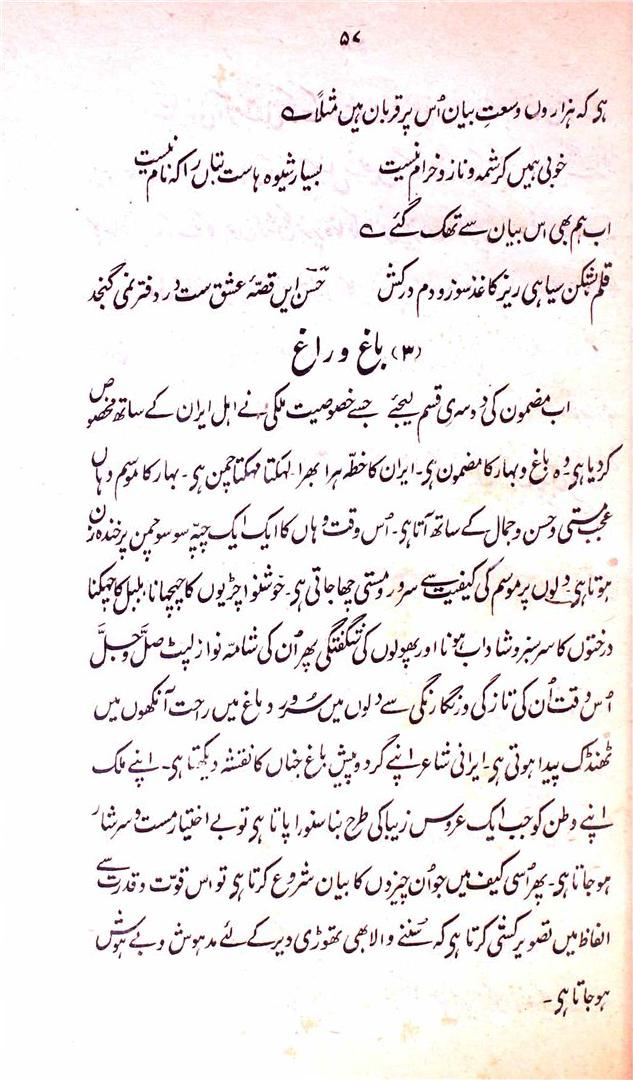 ۵۷
ہی کہ ہزاروں وسعتِ بیان اُس پر قربان ہیں مثلاً ے
خوبی ہمیں کرشمہ و ناز و خرام نیست بسیار شیوہ ہاست بتاں را کہ نام نیست
اب ہم بھی اس بیان سے تھک گئے ے
قلم بشکن سیاہی ریز کاغذ سوز و دم درکش حسن ایں قصۂ عشق ست در دفتر نمی گنجد
(۳) باغ و راغ
اب مضمون کی دوسری قسم لیجئے جسے خصوصیت ملکی نے اہل ایران کے ساتھ مخصوص
کر دیا ہی۔ وہ باغ و بہار کا مضمون ہی۔ ایران کا خطّہ ہرا بھرا لہکتا مہکتا چمن ہی۔ بہار کا موسم وہاں
عجب مستی و حسن و جمال کے ساتھ آتا ہی۔ اُس وقت وہاں کا ایک ایک چپہ سو سو چمن پر خندہ زن
ہوتا ہی۔ دلوں پر موسم کی کیفیت سے سرور و مستی چھا جاتی ہی۔ خوشنوا چڑیوں کا چہچہانا، بلبل کا چہکنا
درختوں کا سرسبز و شاداب ہونا اور پھولوں کی شگفتگی پھر اُن کی شامّہ نواز لپٹ صلَّ و جلَّ
اُس وقت اُن کی تازگی و رنگارنگی سے دلوں میں سُرور دماغ میں راحت آنکھوں میں
ٹھنڈک پیدا ہوتی ہی۔ ایرانی شاعر اپنے گرد و پیش باغ جناں کا نقشہ دیکھتا ہی۔ اپنے ملک
اپنے وطن کو جب ایک عروس زیبا کی طرح بنا سنورا پاتا ہی تو بے اختیار مست و سرشار
ہو جاتا ہی۔ پھر اُسی کیف میں جو اُن چیزوں کا بیان شروع کرتا ہی تو اس قوّت و قدرت سے
الفاظ میں تصویر کشی کرتا ہی کہ سُننے والا بھی تھوڑی دیر کے لئے مدہوش و بے ہوش
ہو جاتا ہی۔